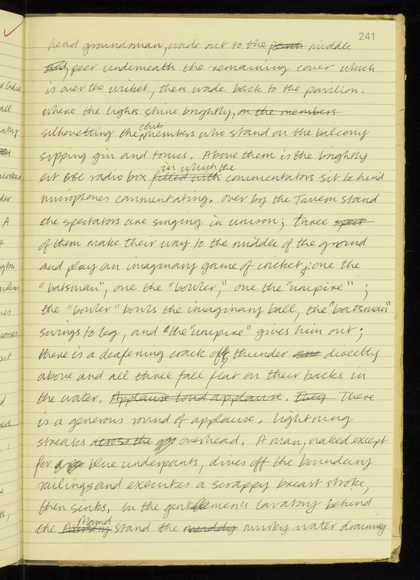 241
head groundsman, wade out to the middle
peer underneath the remaining cover which
is over the wicket, then wade back to the pavilion.
Where the lights shine brightly, on the members
silhouetting the club members who stand on the balcony
sipping gin and tonics. Above them is the brightly
lit BBC radio box filled with in which the commentators sit behind
microphones commentating. Over by the Tavern stand
the spectators are singing in unison; three
of them make their way to the middle of the ground
and play an imaginary game of cricket; one the
"batsman", one the "bowler", one the "umpire";
the "bowler" bowls the imaginary ball, the "batsman"
swings to leg, and the "umpire" gives him out;
there is a deafening crack of thunder directly
above and all three fall flat on their backs in
the water. Applause loud applause. There
is a generous round of applause. Lightning
streaks across the overhead. A man, naked except
for blue underpants, dives off the boundary
railings and executes a scrappy breast stroke,
then sinks. In the gentlemen's lavatory behind
the Mound stand the muddy murky water draining